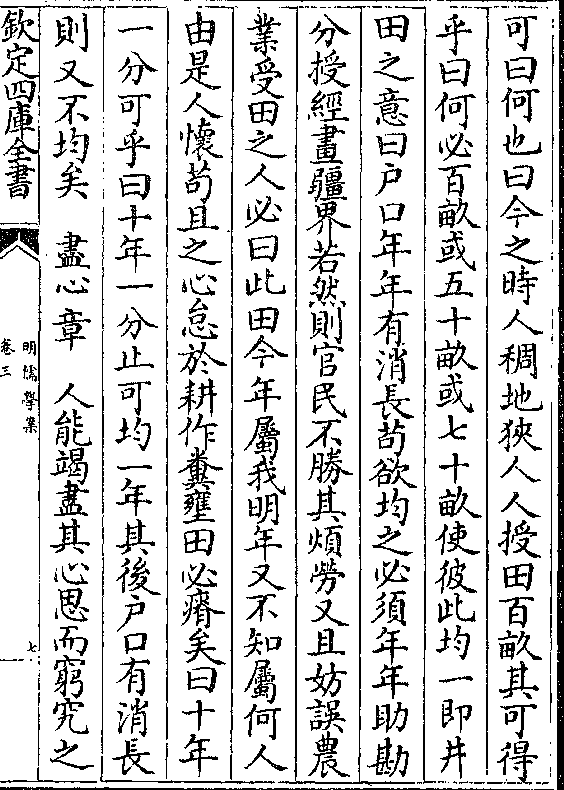 可曰何也曰今之時人稠地狹人人授田百畝其可得
乎曰何必百畝或五十畝或七十畝使彼此均一即井
田之意曰戶口年年有消長苟欲均之必須年年助勘
分授經畫疆界若然則官民不勝其煩勞又且妨誤農
業受田之人必曰此田今年屬我明年又不知屬何人
由是人懷苟且之心怠於耕作糞壅田必瘠矣曰十年
一分可乎曰十年一分止可均一年其後戶口有消長
則又不均矣　盡心章　人能竭盡其心思而窮究之
欽定四庫全書
明儒學案
卷三
七